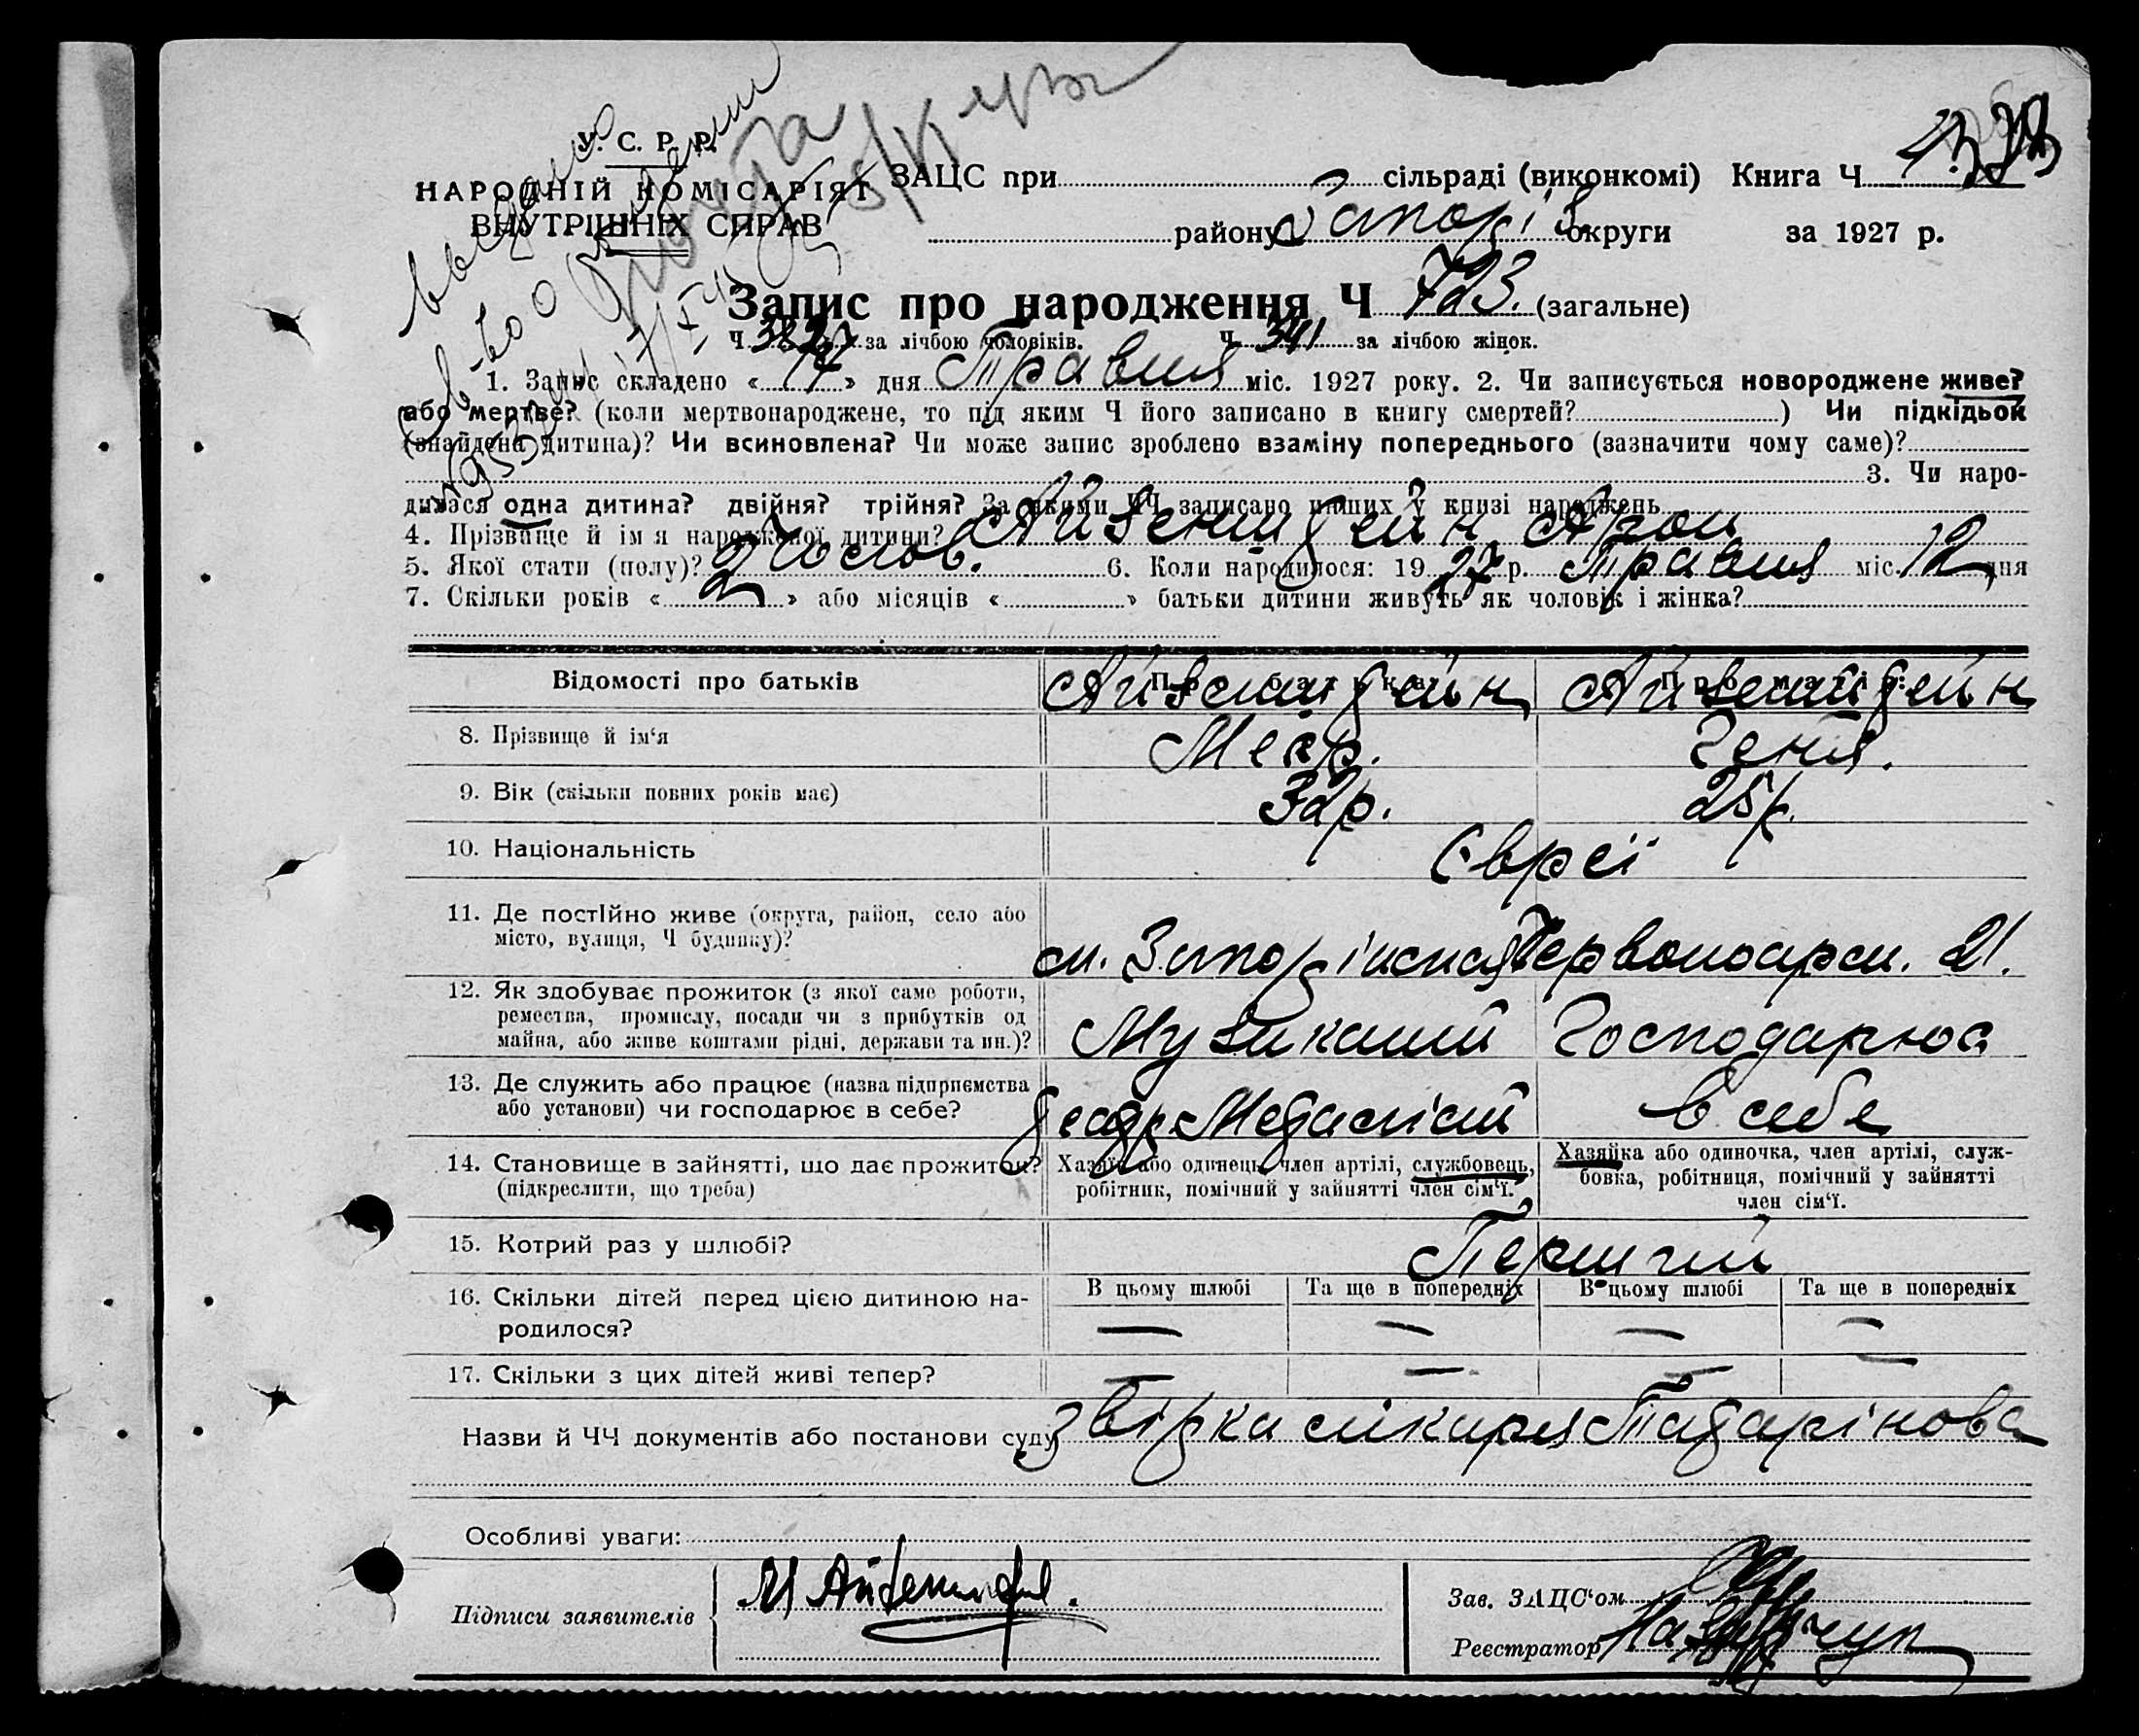 У. С. Р. Р.
НАРОДНІЙ КОМІСАРІЯТ
ВНУТРІШНІХ СПРАВ
ЗАЦС при сільраді (виконкомі) Книга Ч
району Запоріз. округи за 1927 р.
Запис про народження Ч 723. (загальне)
Ч 382 за лічбою чоловіків. Ч 341 за лічбою жінок.
1. Запис складено « 17 » дня Травня міс. 1927 року. 2. Чи записується новороджене живе?
або мертве? (коли мертвонароджене, то під яким Ч його записано в книгу смертей? ) Чи підкідьок
(знайдена дитина)? Чи всиновлена? Чи може запис зроблено взаміну попереднього (зазначити чому саме)?
3. Чи наро-
дилася одна дитина? двійня? трійня? За якими ЧЧ записано инших у книзі народжень
4. Прізвище й ім'я народженої дитини? Айзенштейн Арон
5. Якої стати (полу)? Чолов. 6. Коли народилося: 1927 р. Травня міс. 12 дня
7. Скільки років « 2 » або місяців « » батьки дитини живуть як чоловік і жінка?
Відомості про батьків Про батька: Про матір:
Айзенштейн Айзенштейн
8. Прізвище й ім‘я Меєр. Геня.
9. Вік (скільки повних років має) 32 р. 25 р.
10. Національність Євреї
11. Де постійно живе (округа, район, село або
місто, вулиця, Ч будинку)? м. Запоріжжя Червоноарм. 21.
12. Як здобуває прожиток (з якої саме роботи,
ремества, промислу, посади чи з прибутків од
майна, або живе коштами рідні, держави та ин.)? Музикант Господарює
13. Де служить або працює (назва підприємства
або установи) чи господарює в себе? театр Металіст в себе
14. Становище в зайнятті, що дає прожиток?
(підкреслити, що треба)
Хазяїн або одинець, член артілі, службовець,
робітник, помічний у зайнятті член сім‘ї.
Хазяйка або одиночка, член артілі, служ-
бовка, робітниця, помічний у зайнятті
член сім‘ї.
15. Котрий раз у шлюбі? Перший
16. Скільки дітей перед цією дитиною на-
родилося?
В цьому шлюбі Та ще в попередніх В цьому шлюбі Та ще в попередніх
— — — —
17. Скільки з цих дітей живі тепер? — — — —
Назви й ЧЧ документів або постанови суду звірка лікаря Татарінова
Особливі уваги:
Підписи заявителів М Айзенштейн.
Зав. ЗАЦС‘ом
Реєстратор